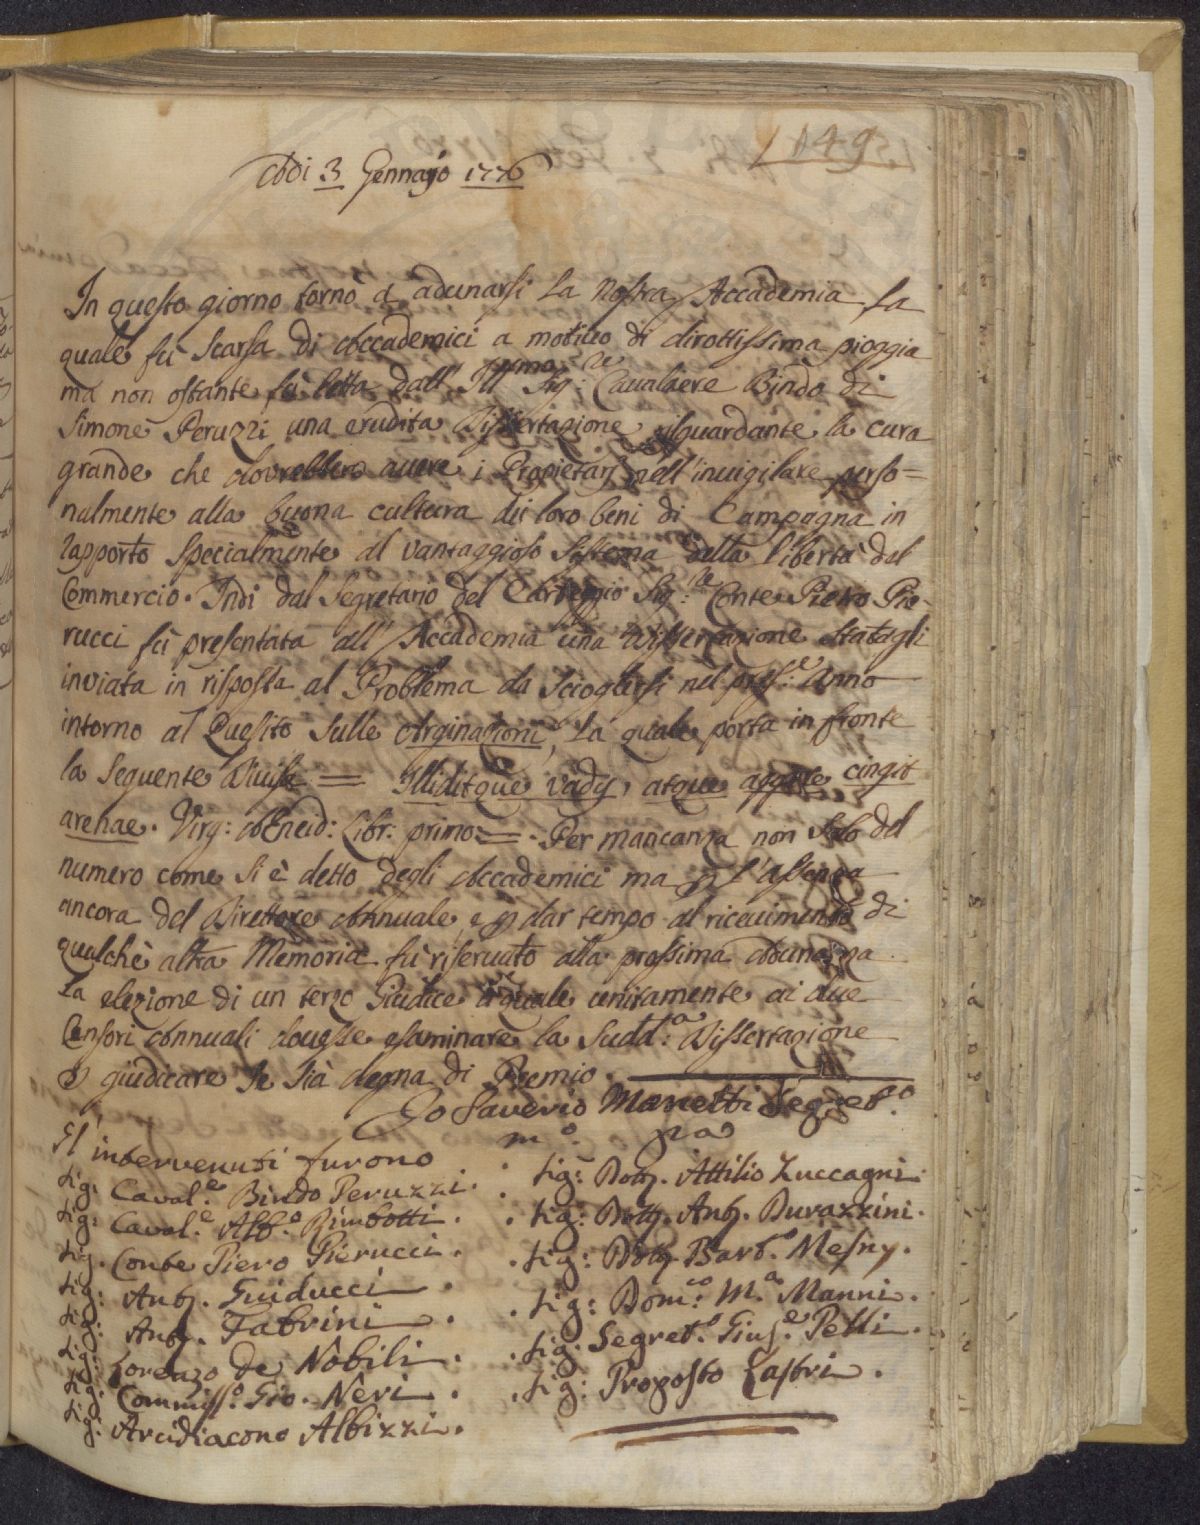 149
Adi 3 Gennajo 1776
In questo giorno tornò a adunarsi la nostra Accademia la
quale fù scarsa di Accademici a motivo di dirottissima pioggia
ma non ostante fù letta dall' Ill:mo Sig:re Cavaliere Bindo di
Simone Peruzzi una erudita Dissertazione risguardante la cura
grande che dovrebbero avere i Proprietarj nell'invigilare perso=
nalmente alla buona cultura dei loro beni di Campagna in
rapporto specialmente al vantaggioso sistema della libertà del
Commercio. Indi dal Segretario del Carteggio Sig:re Conte Pietro Pie-
rucci fù presentata all' Accademia una Dissertazione statagli
inviata in risposta al Problema da sciogliersi nel pres:e Anno
intorno al Quesito sulle Arginazioni, la quale porta in fronte
la seguente Divisa = Illiditque vadis, atque aggere cingit
arenae. Virg: AEneid: Libr: primo =. Per mancanza non solo del
numero come si è detto degli Accademici ma p l'assenza
ancora del Direttore Annuale, e p dar tempo al ricevimento di
qualche altra Memoria fù riservato alla prossima Adunanza
la elezione di un terzo Giudice il quale unitamente ai due
Censori Annuali dovesse esaminare la sudd:a Dissertazione
e giudicare se sia degna di Premio.
Io Saverio Manetti Segret:o
m:o pa
Gl'intervenuti furono
Sig: Caval:e Bindo Peruzzi.
Sig: Caval:e Alb:o Rimbotti.
Sig. Conte Piero Pierucci.
Sig: Ant. Guiducci.
Sig: Ant. Fabrini.
Sig: Lorenzo de Nobili.
Sig: Commiss:o Gio. Neri.
Sig: Arcidiacono Albizzi.
. Sig: Dott. Attilio Zuccagni.
. Sig: Dott. Ant. Durazzini.
. Sig: Dott. Bart:o Mesny.
. Sig: Dom:co M:a Manni.
. Sig: Segret:o Gius:e Pelli.
. Sig: Proposto Lastri.